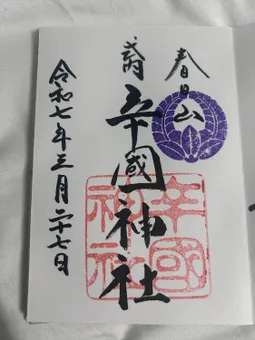 春日山
式内
辛國神社
令和七年三月二十七日
辛國神社